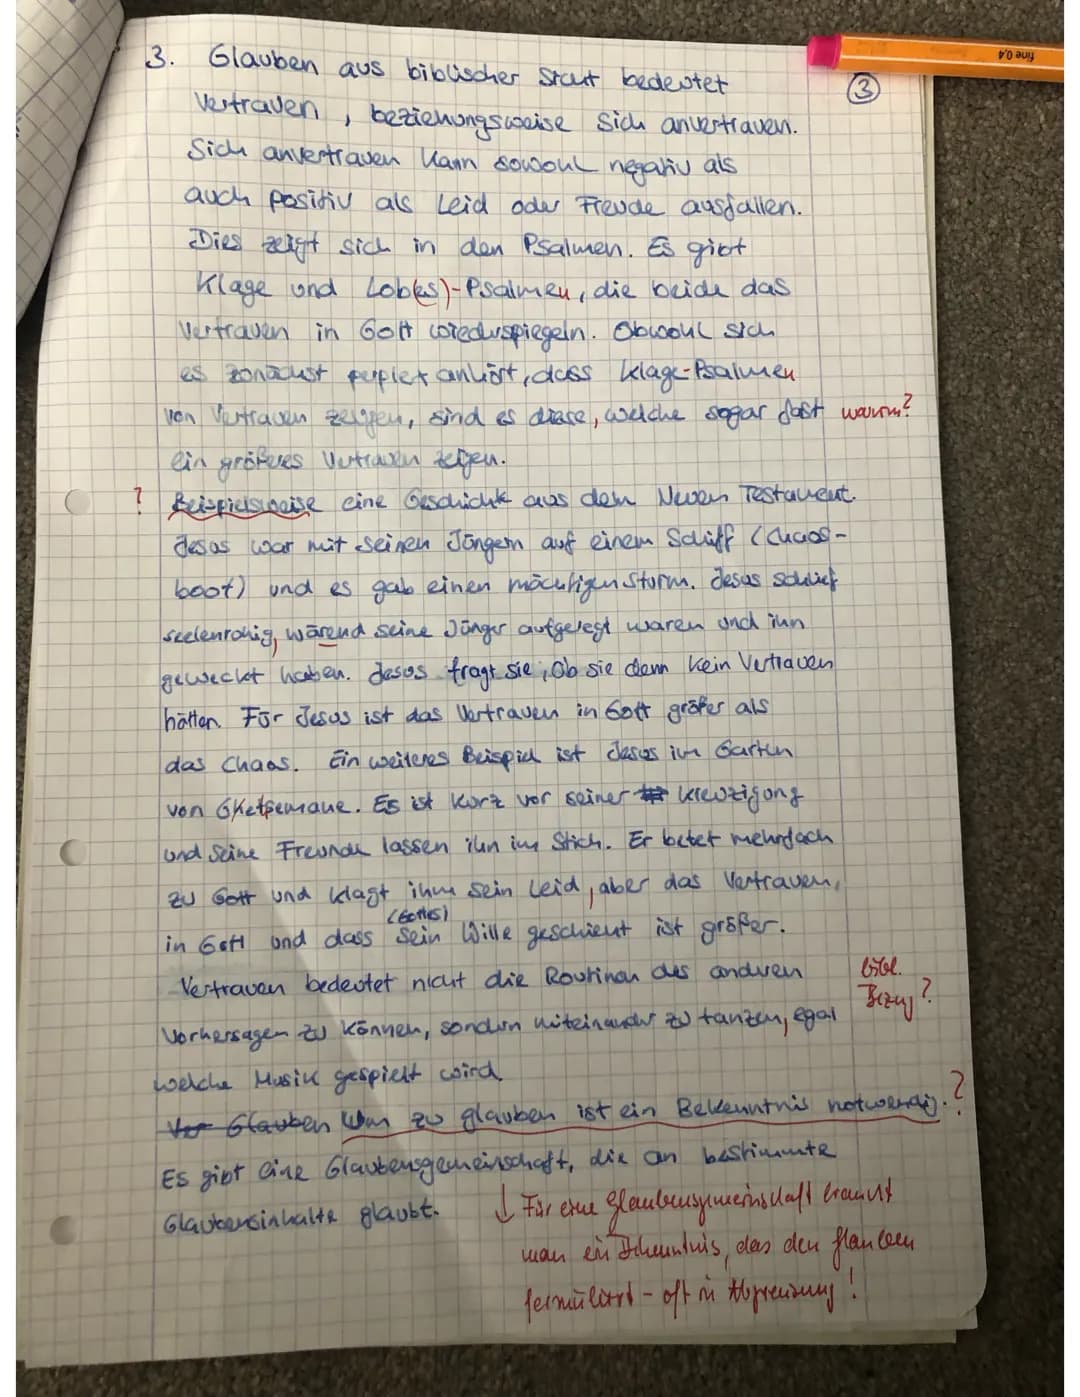 fine 0,4
3. Glauben aus biblischer Sicht bedeutet
③
Vertrauen, beziehungsweise sich anvertrauen.
Sich anvertrauen kann sowohl negativ als
auch positiv als Leid oder Freude ausfallen.
Dies zeigt sich in den Psalmen. Es gibt
Klage und Lob(es)-Psalmen, die beide das
Vertrauen in Gott wiederspiegeln. Obwohl sich
es zunächst perplex anhört, dass Klage-Psalmen
von Vertrauen zeugen, sind es diese, welche sogar fast warum?
ein größeres Vertrauen zeigen.
? Beispielsweise eine Geschichte aus dem Neuen Testament.
Jesus war mit seinen Jüngern auf einem Schiff (Chaos-
boot) und es gab einen mächtigen Sturm. Jesus schlief
seelenruhig, wärend seine Jünger aufgeregt waren und ihn
geweckt haben. Jesus fragt sie, Ob sie denn kein Vertrauen
hätten. Für Jesus ist das Vertrauen in Gott größer als
das Chaos. Ein weiteres Beispiel ist Jesus im Garten
von Ghetsemane. Es ist kurz vor seiner Kreuzigung
und seine Freunde lassen ihn im Stich. Er betet mehrfach
zu Gott und klagt ihm sein Leid, aber das Vertrauen,
(Gottes)
in Gott und dass Sein Wille geschieht ist größer.
Vertrauen bedeutet nicht die Routinen des anderen bibl.
Vorhersagen zu können, sondern miteinander zu tanzen, egal Bezug?
welche Musik gespielt wird.
Glauben Um zu glauben ist ein Bekenntnis notwendig. ?
Es gibt eine Glaubensgemeinschaft, die an bestimmte
Glaubensinhalte glaubt. ↓ Für eine Glaubensgemeinschaft braucht
man ein Bekenntnis, das den Glauben
formuliert - oft in Abgrenzung!